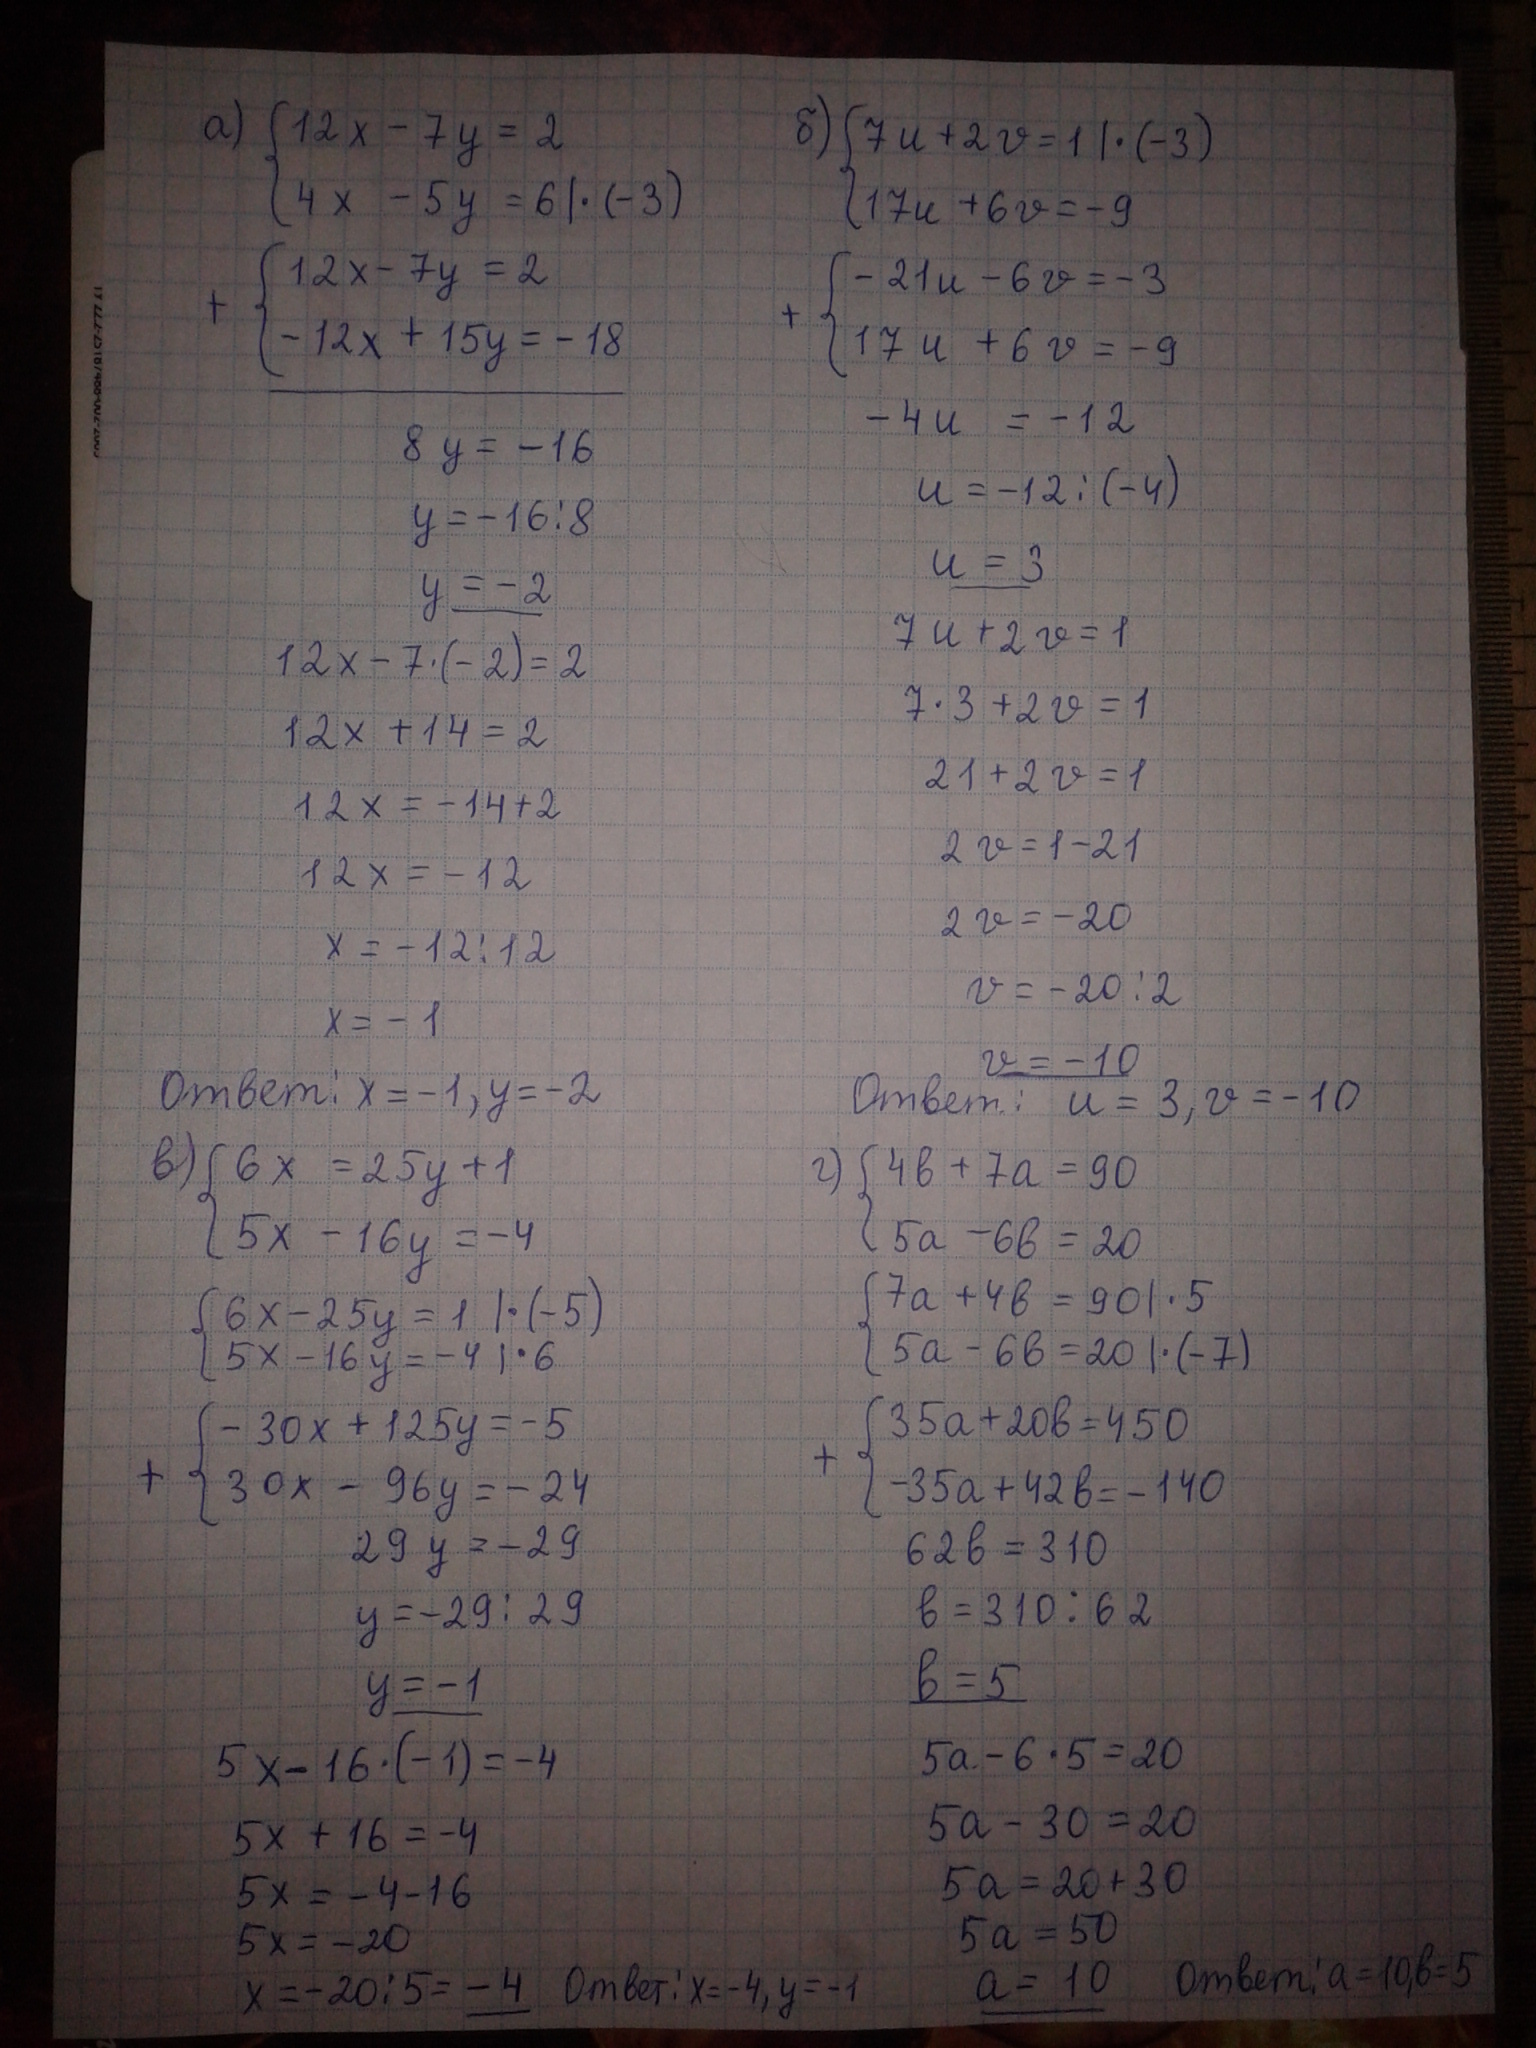 а) { 12x - 7y = 2
4x - 5y = 6 |·(-3)
+ { 12x - 7y = 2
-12x + 15y = -18
8y = -16
y = -16:8
y = -2
12x - 7·(-2) = 2
12x + 14 = 2
12x = -14+2
12x = -12
x = -12:12
x = -1
Ответ: x = -1, y = -2
б) { 7u + 2v = 1 |·(-3)
17u + 6v = -9
+ { -21u - 6v = -3
17u + 6v = -9
-4u = -12
u = -12:(-4)
u = 3
7u + 2v = 1
7·3 + 2v = 1
21 + 2v = 1
2v = 1-21
2v = -20
v = -20:2
v = -10
Ответ: u = 3, v = -10
в) { 6x = 25y + 1
5x - 16y = -4
{ 6x - 25y = 1 |·(-5)
5x - 16y = -4 |·6
+ { -30x + 125y = -5
30x - 96y = -24
29y = -29
y = -29:29
y = -1
5x - 16·(-1) = -4
5x + 16 = -4
5x = -4-16
5x = -20
x = -20:5 = -4 Ответ: x = -4, y = -1
г) { 4в + 7а = 90
5а - 6в = 20
{ 7а + 4в = 90 |·5
5а - 6в = 20 |·(-7)
+ { 35а + 20в = 450
-35а + 42в = -140
62в = 310
в = 310:62
в = 5
5а - 6·5 = 20
5а - 30 = 20
5а = 20+30
5а = 50
а = 10 Ответ: а = 10, в = 5